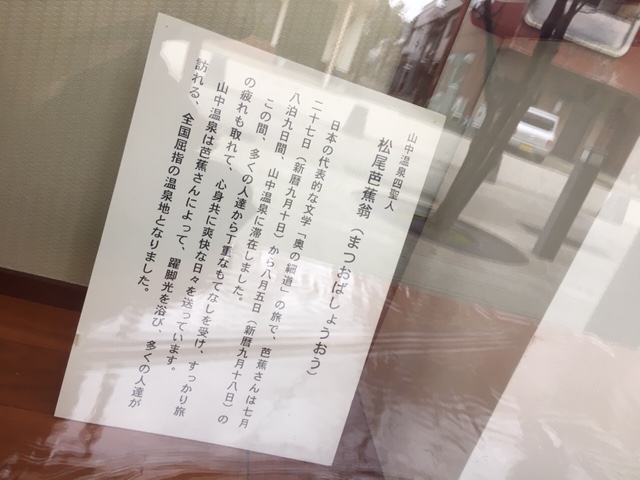 山中温泉四聖人
松尾芭蕉翁（まつおばしょうおう）
日本の代表的な文学「奥の細道」の旅で、芭蕉さんは七月
二十七日（新暦九月十日）から八月五日（新暦九月十八日）の
八泊九日間、山中温泉に滞在しました。
この間、多くの人達から丁重なもてなしを受け、すっかり旅
の疲れも取れて、心身共に爽快な日々を送っています。
山中温泉は芭蕉さんによって、躍脚光を浴び、多くの人達が
訪れる、全国屈指の温泉地となりました。